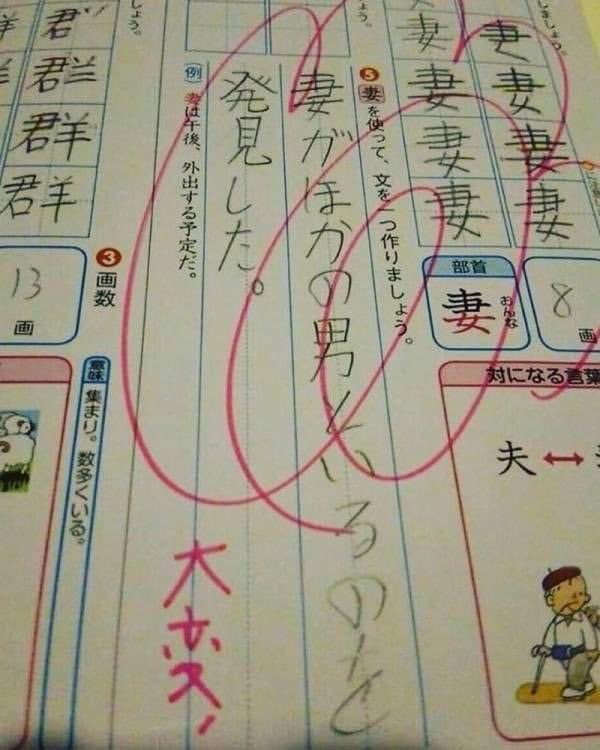 しましょう。
妻
妻
妻
妻
妻
妻
妻
妻
8
画
部首
妻
おんな
対になる言葉
夫 ↔
5 妻を使って、文を一つ作りましょう。
妻がほかの男といるのを
発見した。
例 妻は午後、外出する予定だ。
大変!
しょう。
群
群
群
群
3 画数
13
画
意味 集まり。数多くいる。